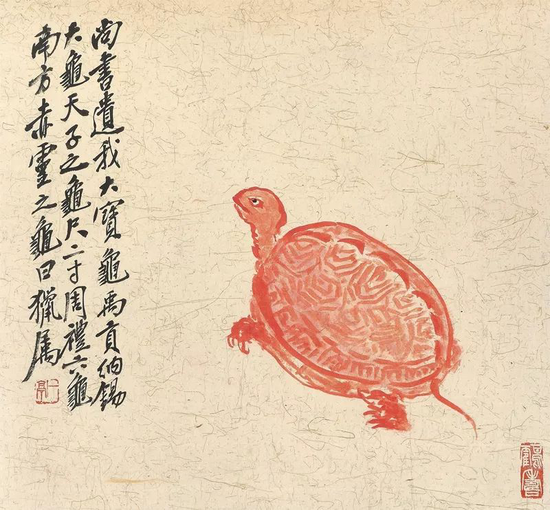 尚書遺我大寶龜禹貢納錫
大龜天子之龜尺二寸周禮六龜
南方赤靈之龜曰獵屬